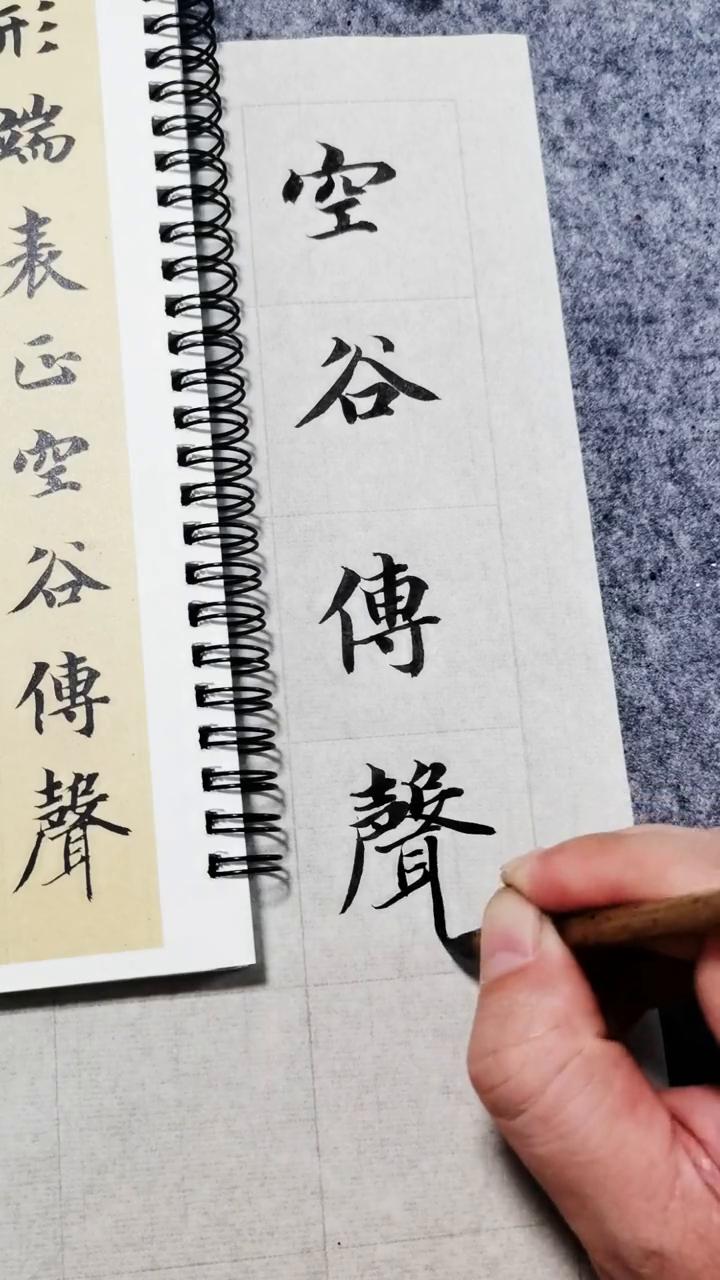 空谷傳聲
形端表正空谷傳聲